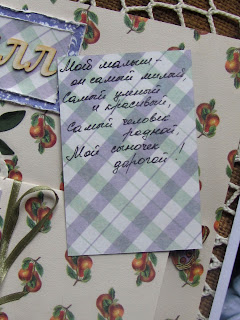 лл
Мой малыш –
он самый милый,
Самый умный
и красивый,
Самый человек
родной,
Мой сыночек
дорогой!